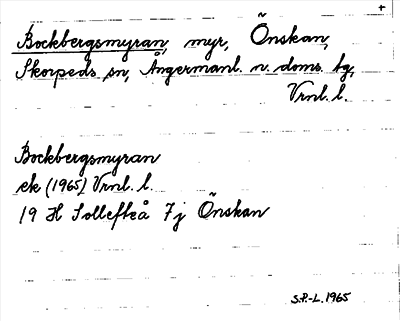 +
Bockbergsmyran, myr, Önskan,
Skorpeds sn, Ångermanl. n. doms. bg,
Vrnl. l.
Bockbergsmyran
ek (1965) Vrnl. l.
19 H Sollefteå 7j Önskan
S.P.-L. 1965